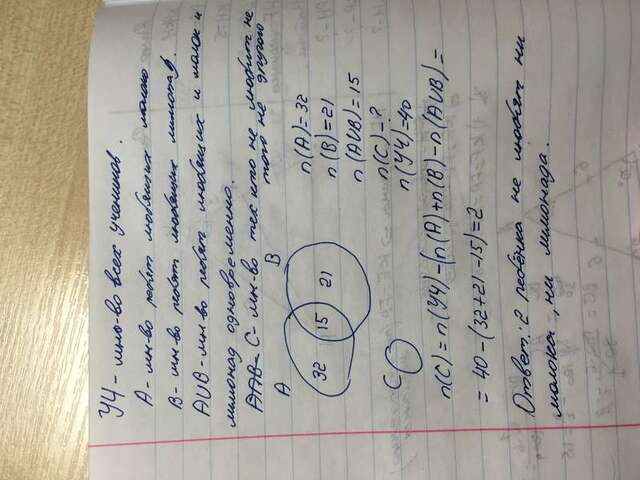 УЧ - мно-во всех учеников.
А - мн-во ребят любящих молоко
В - мн-во ребят любящих лимонад.
АUВ - мн-во ребят любящих и молоко и
лимонад одновременно.
С - мн-во тех кто не любит не
того не другого
А В
32 15 21
С
n(A)=32
n(B)=21
n(AUB)=15
n(C)-?
n(УЧ)=40
n(C)=n(УЧ)-(n(A)+n(B)-n(AUB)=
=40-(32+21-15)=2
Ответ: 2 ребёнка не любят ни
молока, ни лимонада.